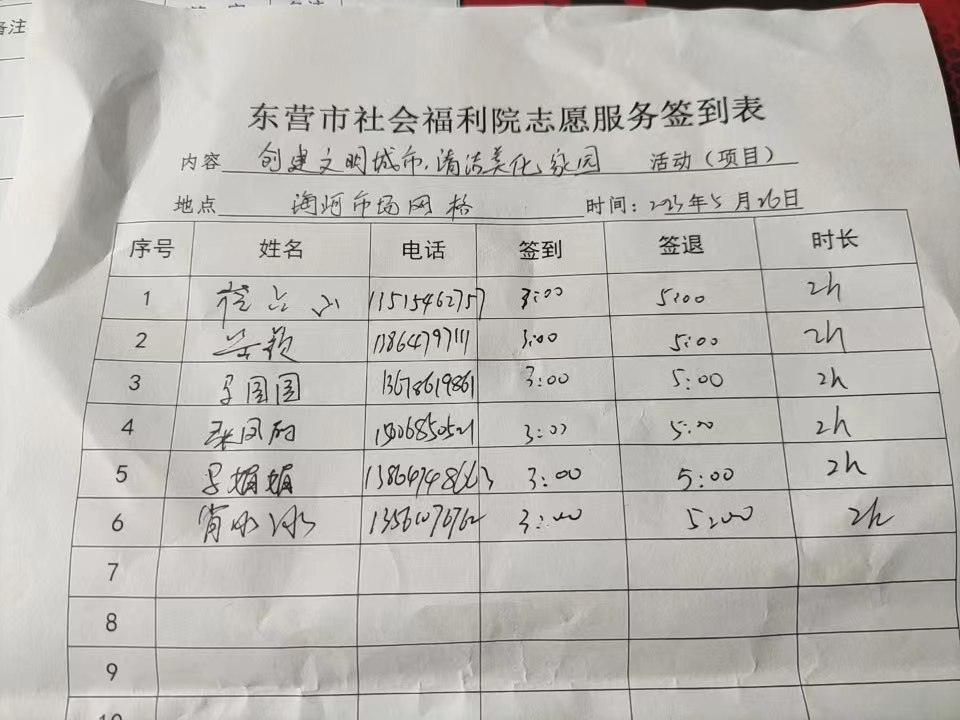 备注
东营市社会福利院志愿服务签到表
内容 创建文明城市,清洁美化家园 活动（项目）
地点 海河市场网格 时间：2023年5月26日
序号 姓名 电话 签到 签退 时长
1 13515462757 3:00 5:00 2h
2 13864797111 3:00 5:00 2h
3 13678619861 3:00 5:00 2h
4 15006850521 3:00 5:00 2h
5 娟娟 3:00 5:00 2h
6 肖冰冰 13561076762 3:00 5:00 2h
7
8
9
10